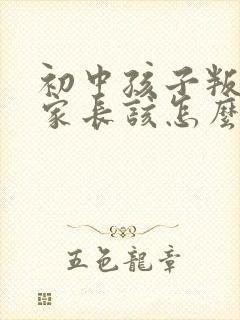 初中孩子叛
家长该怎么
五色龍章